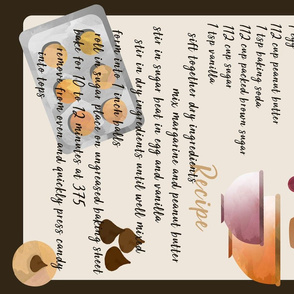 1 egg
1/2 cup peanut butter
1 tsp baking soda
1/2 cup packed brown sugar
1/2 cup sugar
1 tsp vanilla
Recipe
sift together dry ingredients
mix margarine and peanut butter
stir in sugar beat in egg and vanilla
stir in dry ingredients until well mixed
form into 1 inch balls
roll in sugar place on ungreased baking sheet
bake for 10 to 12 minutes at 375
remove from oven and quickly press candy
into tops